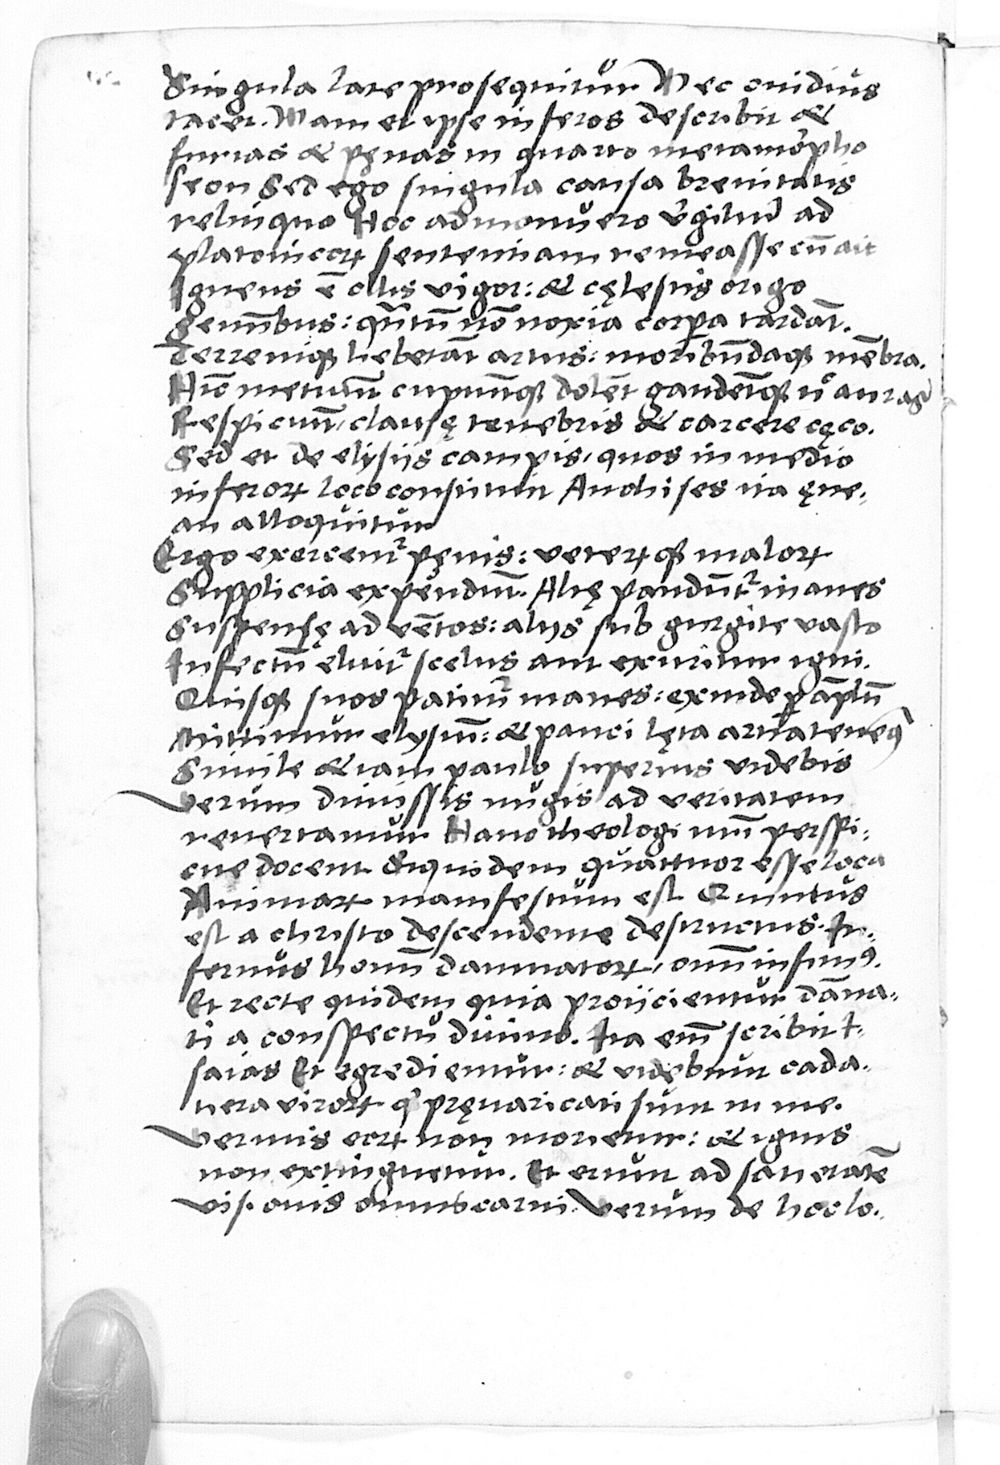 Singula late prosequitur Nec ouidius
tacet. Nam et ipse inferos describit &
furias & pęnas in quarto metamorpho
seon Sed ego singula causa breuitatis
relinquo Hoc admonuero v̄giliū ad
platonicorꝝ sententiam remeasse cū ait
Igneus ē ollis vigor: & cęlestis origo
Seminibus: qūtū nō noxia corpꝑa tardāt.
Terreniqꝫ hebetāt artus: moribūdaqꝫ mēbra.
Hīc metuūt cupiūtqꝫ dolēt gaudētqꝫ nͨ auras
Respiciūt, clausę tenebris & carcere cęco.
Sed et de elysijs campis, quos in medio
inferorꝝ loco constituit Anchises ita ęne-
an alloquitur
Ergo exercentᷣ pęnis: veterꝝqꝫ malorꝝ
Supplicia expendūt. Alię pandūtᷣ inanes
Suspensę ad vētos: alijs sub gurgite vasto
Infectū eluitᷣ scelus aut exuritur igni.
Quisqꝫ suos patimᷣ manes: exinde ꝑ āplū
Mittimur elysiū: & pauci lęta arua tenemꝰ
Simile & iam paulo superius videbis
Verum dimissis nugis ad veritatem
reuertamur Hanc theologi nr̄i perspi-
cue docent Siquidem quattuor esse loca
Animarꝝ manifestum est Quintus
est a christo descendente destructus. In-
fernus hom̄ damnatorꝝ, om̄ infimꝰ.
Et recte quidem quia proijcientur dāna-
ti a conspectu diuino. Ita em̄ scribit I-
saias Et egredientur: & videbunt cada-
uera virorꝝ qͥ pręuaricati sunt in me.
Vermis eorꝝ non morietur: & ignis
non extinguetur. Et erunt ad satietatē
visionis omni carni. Verum de hoc lo-